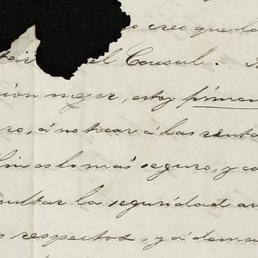 o creo que la
el Consul.
ción mejor, estoy firmem
ro, á no tocar á las renta
es lo mas seguro, y co
sultar la seguridad an
s respectos, y á dema